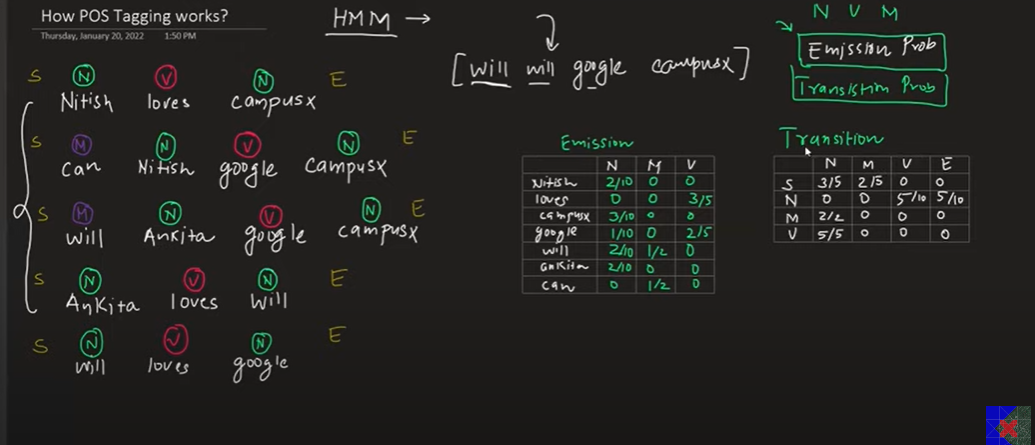 How POS Tagging works?
Thursday, January 20, 2022 1:50 PM
HMM →
[will will google campusx]
N V M
Emission Prob
Transistion Prob
S N V N E
Nitish loves campusx
S M N V N E
can Nitish google campusx
S M N V N E
will Ankita google campusx
S N V N E
Ankita loves will
S N V N E
will loves google
Emission
N M V
Nitish 2/10 0 0
loves 0 0 3/5
campusx 3/10 0 0
google 1/10 0 2/5
will 2/10 1/2 0
ankita 2/10 0 0
can 0 1/2 0
Transition
N M V E
S 3/5 2/5 0 0
N 0 0 5/10 5/10
M 2/2 0 0 0
V 5/5 0 0 0